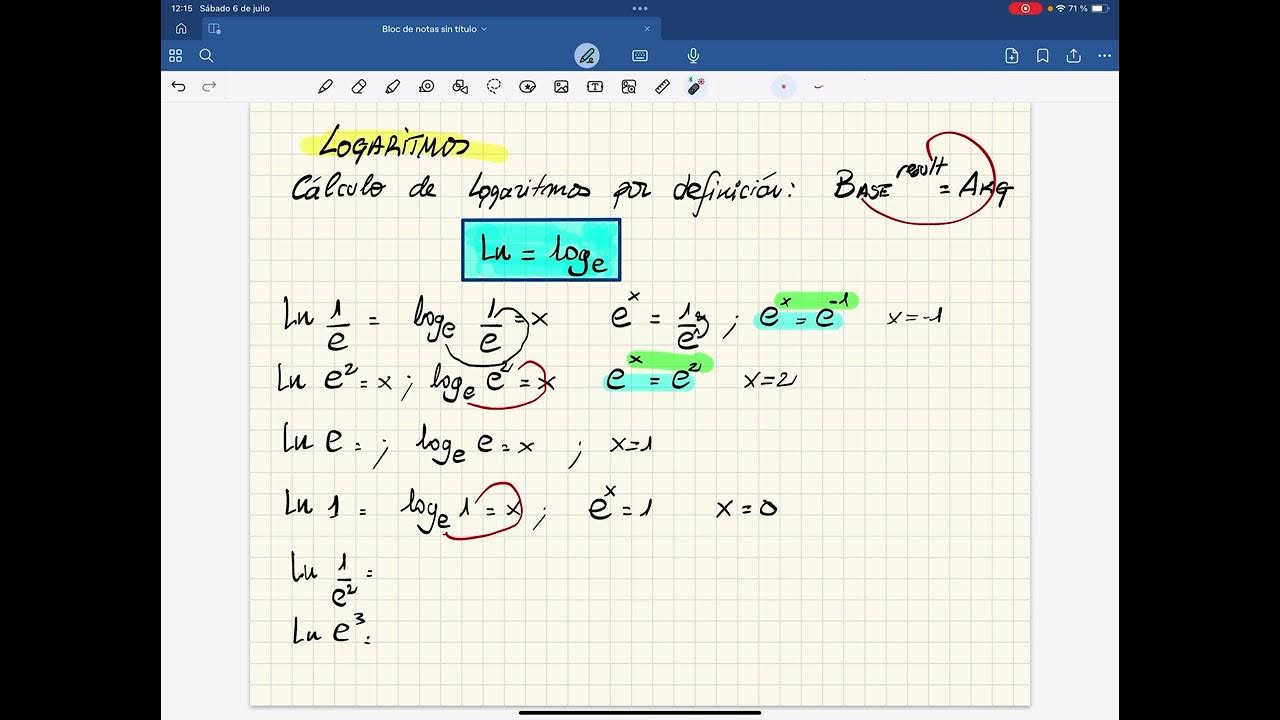 12:15 Sábado 6 de julio 71 %
Bloc de notas sin título
LOGARITMOS
Cálculo de logaritmos por definición: BASE^result = ARG
Ln = log_e
Ln 1/e = log_e 1/e = x e^x = 1/e ; e^x = e^-1 x=-1
Ln e^2 = x ; log_e e^2 = x e^x = e^2 x=2
Ln e = ; log_e e = x ; x=1
Ln 1 = log_e 1 = x ; e^x = 1 x = 0
Ln 1/e^2 =
Ln e^3 =